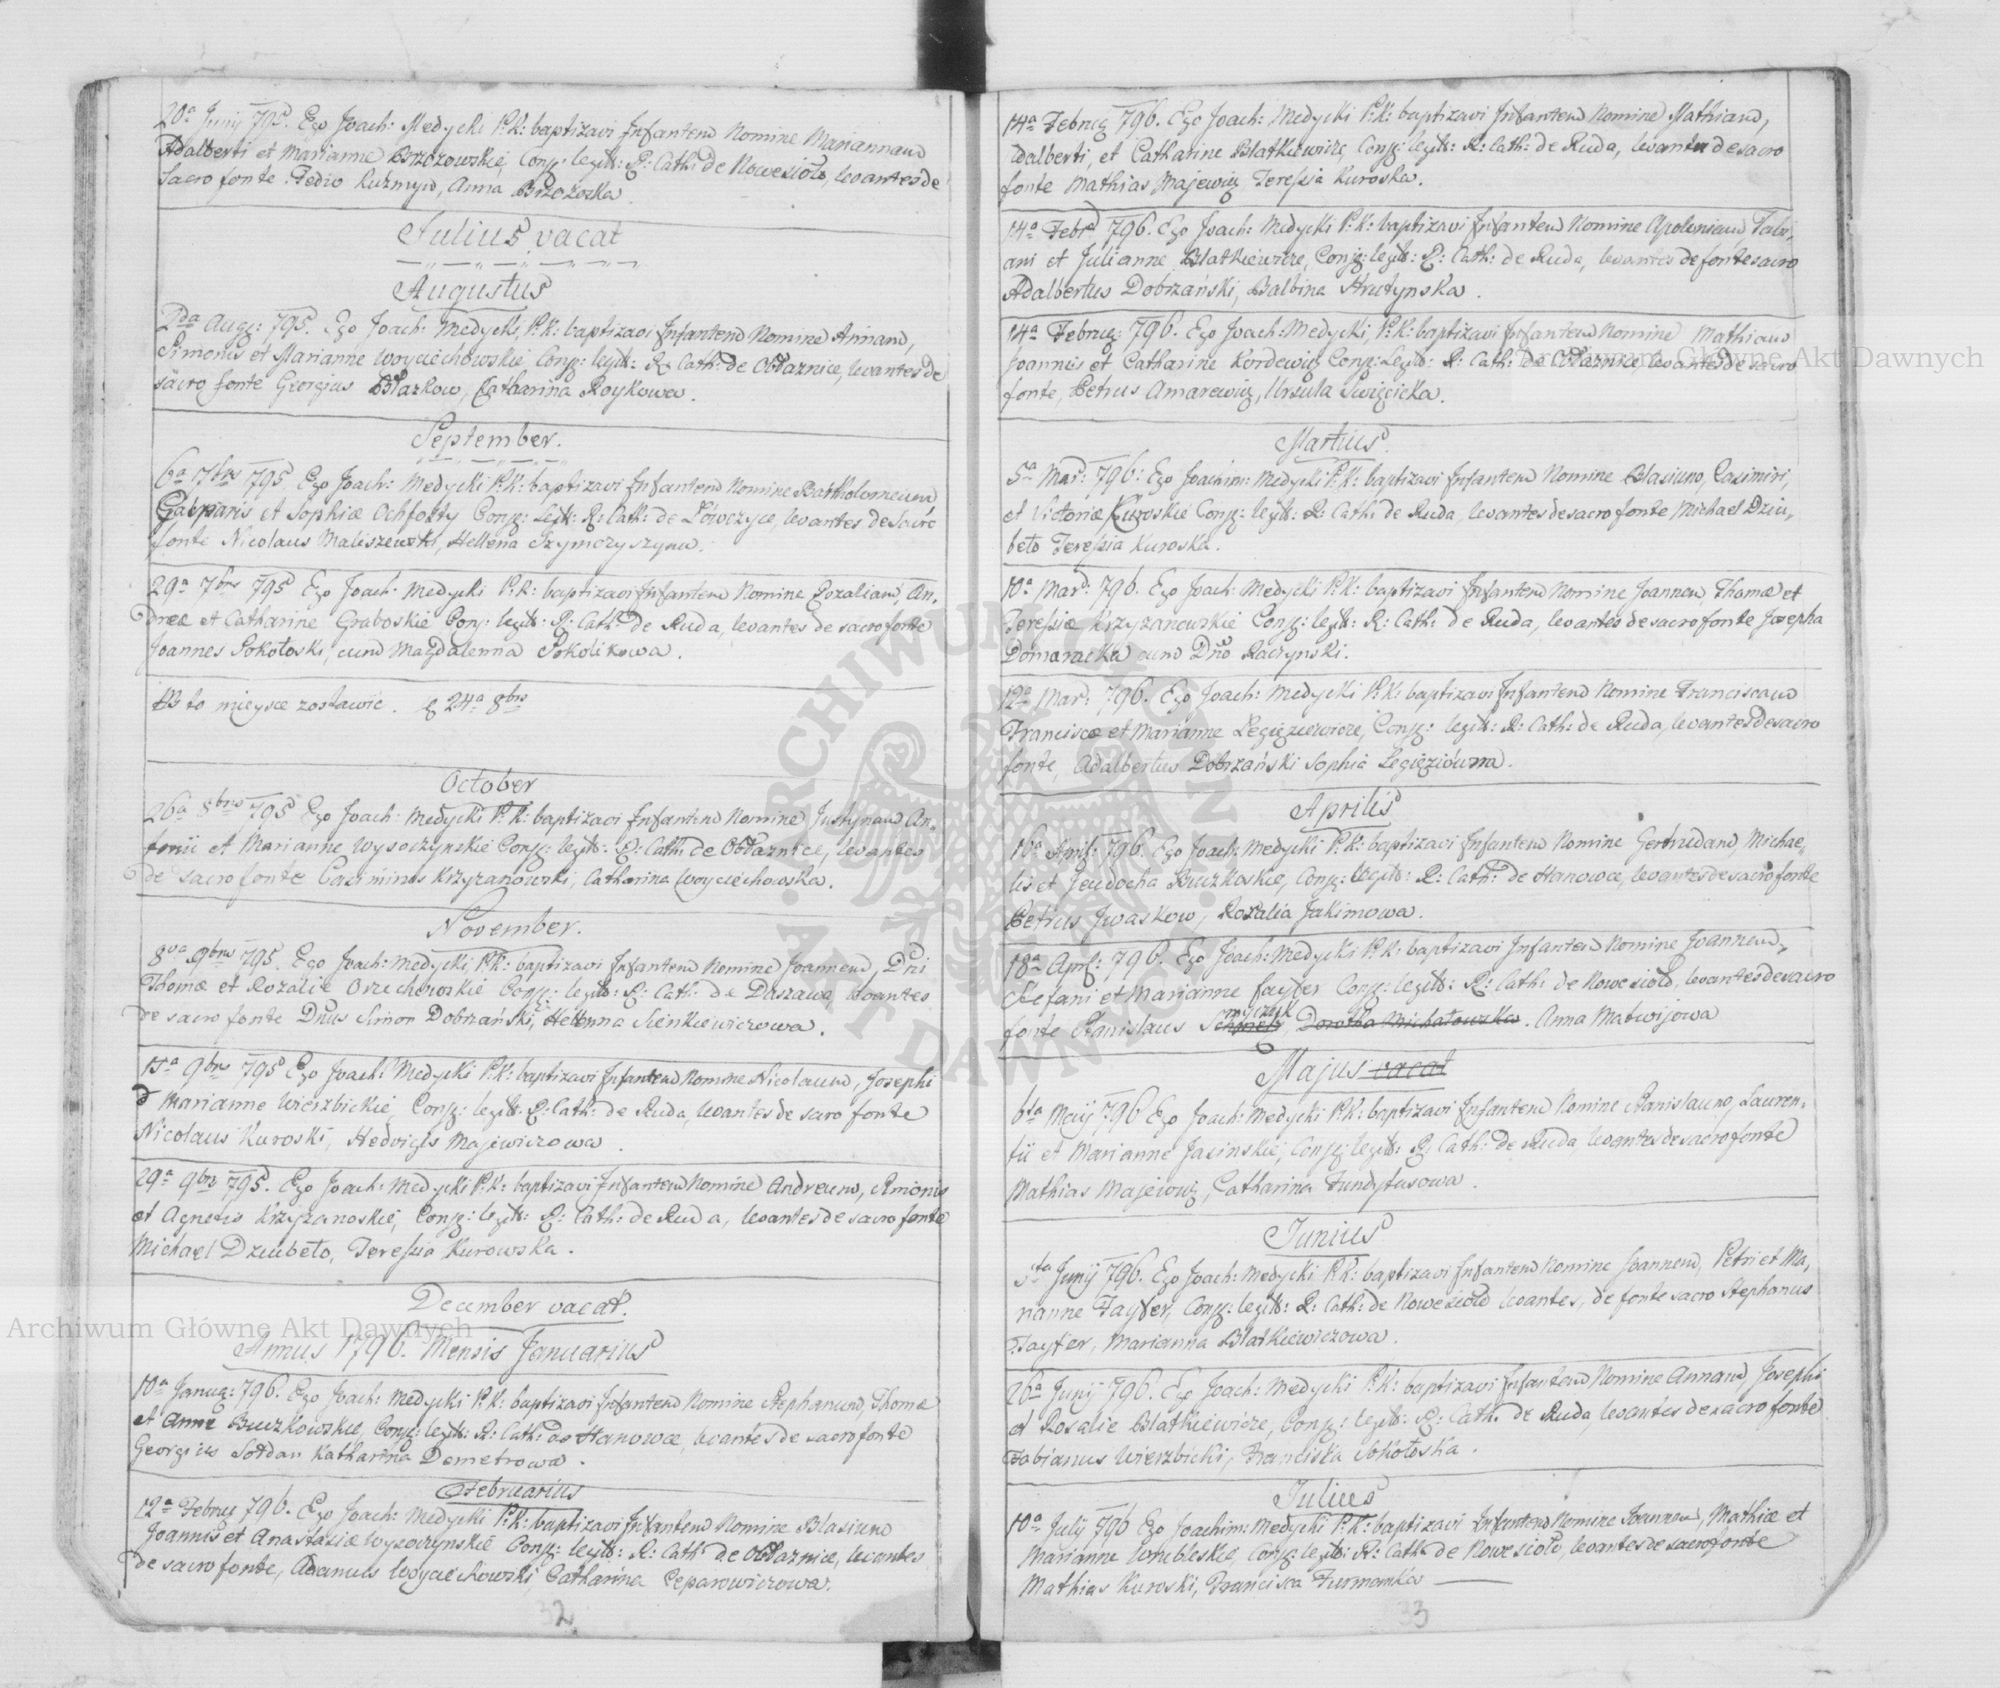 20a Junij 795. Ego Joach: Medycki P.K: baptizavi Infantem Nomine Mariannam
Adalberti et Marianne Brzozowskie, Conj: legit: R: Cath: de Nowesioło, levantes de
Sacro fonte Fedio Kuzmyw, Anna Brzozoska.
Julius vacat
Augustus
2da Augg: 795. Ego Joach: Medycki, P.K: baptizavi Infantem Nomine Annam,
Simonis et Marianne Woyciechowskie Conj: legit: R: Cath: de Obłaznice, levantes de
sacro fonte Georgius Błazkow, Catharina Roykowa.
September.
6a 7bris 795 Ego Joach: Medycki P.K: baptizavi Infantem Nomine Bartholomeum
Gasparis et Sophiæ Conj: legit: R: Cath: de Łówczyce, levantes de Sacro
fonte Nicolaus Maliszewski, Hellena Szymczyszyna.
29a 7bris 795 Ego Joach: Medycki P.K: baptizavi Infantem Nomine Rozaliam, An,
dree et Catharine Graboskie Conj: legit: R: Cath: de Ruda, levantes de sacro fonte
Joannes Sokołoski, cum Magdalenna Sokolikowa.
NB to mieysce zostawić. 24a 8bris
October
26a 8bris 795 Ego Joach: Medycki P.K: baptizavi Infantem Nomine Justynam An,
tonii et Marianne Wysoczynskie Conj: legit: R: Cath: de Obłaznice, levantes
de sacro fonte Casimirus Krzyzanowski, Catharina Woyciechowska.
November.
8va 9bris 795. Ego Joach: Medycki, P.K: baptizavi Infantem Nomine Joannem, Dni
Thomæ et Rozalie Orzechowskie Conj: legit: R: Cath: de Daszawa, levantes
de sacro fonte Dnus Simon Dobrzański, Hellenna Sienkiewiczowa.
15a 9bris 795 Ego Joach: Medycki P.K: baptizavi Infantem Nomine Nicolaum, Josephi
Marianne Wierzbickie, Conj: legit: R: Cath: de Ruda, levantes de sacro fonte
Nicolaus Kuroski, Hedvigis Majewiczowa.
29a 9bris 795. Ego Joach: Medycki P.K: baptizavi Infantem Nomine Andream, Simonis
et Agnetis Krzyzanoskie, Conj: legit: R: Cath: de Ruda, levantes de sacro fonte
Michael Dziubeto, Teressia Kurowska.
December vacat.
Annus 1796. Mensis Januarius
10a Januar: 796. Ego Joach: Medycki P.K: baptizavi Infantem Nomine Stephanum, Thomæ
et Anne Buczkowskie, Conj: legit: R: Cath: de Hanowce, levantes de sacro fonte
Georgius Sołdan Katharina Demetrowa.
Februarius
12a Februa 796. Ego Joach: Medycki P.K: baptizavi Infantem Nomine Blasium
Joannis et Anastasiæ Wysoczynskie Conj: legit: R: Cath: de Obłaznice, levantes
de sacro fonte, Adamus Woyciechowski Catharina Ceparowiczowa.
32
14a Februa 796. Ego Joach: Medycki P.K: baptizavi Infantem Nomine Mathiam,
Adalberti, et Catharine Blatkiewicze Conj: legit: R: Cath: de Ruda, levantes de sacro
fonte Mathias Majewicz Teressia Kuroska.
14a Febr 796. Ego Joach: Medycki P.K: baptizavi Infantem Nomine Apoloniam Fabi,
ani et Julianne Blatkiewicze, Conj: legit: R: Cath: de Ruda, levantes de fonte sacro
Adalbertus Dobrzański, Balbina Strutynska.
14a Februa: 796. Ego Joach: Medycki, P.K: baptizavi Infantem Nomine Mathiam
Joannis et Catharine Kordewicz Conj: legit: R: Cath: de Obłaznice, levantes de sacro
fonte, Petrus Amarewicz, Urszula Swięcicka.
Martius
5a Mar: 796: Ego Joachim: Medycki P.K: baptizavi Infantem Nomine Blasium, Casimiri,
et Victoriæ Kuroskie Conj: legit: R: Cath: de Ruda, levantes de sacro fonte Michael Dziu,
beto Teressia Kuroska.
10a Mar: 796. Ego Joach: Medycki P.K: baptizavi Infantem Nomine Joannem, Thomæ et
Teressiæ Krzyzanowskie Conj: legit: R: Cath: de Ruda, levantes de sacro fonte Josepha
Domaracka cum Dno Raczynski.
12a Mar: 796. Ego Joach: Medycki P.K: baptizavi Infantem Nomine Franciscam
Franciscæ et Marianne Legięziewicze, Conj: legit: R: Cath: de Ruda, levantes de sacro
fonte, Adalbertus Dobrzański Sophia Legięziówna.
Aprilis
16a April: 796. Ego Joach: Medycki P.K: baptizavi Infantem Nomine Gertrudam, Michae,
lis et Jeudocha Buczkoskie, Conj: legit: R: Cath: de Hanowce, levantes de sacro fonte
Petrus Iwaskow, Rozalia Jakimowa.
18a April: 796. Ego Joach: Medycki P.K: baptizavi Infantem Nomine Joannem,
Stefani et Marianne Fayfer Conj: legit: R: Cath: de Nowesioło, levantes de sacro
fonte Stanislaus Dorotha Michałowska. Anna Matwijowa
Majus vacat
6ta Maij 796 Ego Joach: Medycki P.K: baptizavi Infantem Nomine Stanislaum, Lauren,
tii et Marianne Jasinskie, Conj: legit: R: Cath: de Ruda, levantes de sacro fonte
Mathias Majewicz, Catharina Fundytusowa.
Junius
5ta Junij 796. Ego Joach: Medycki P.K: baptizavi Infantem Nomine Joannem, Petri et Ma,
rianne Fayfer, Conj: legit: R: Cath: de Nowesioło levantes, de fonte sacro Stephanus
Fayfer, Marianna Blatkiewiczowa.
26a Junij 796. Ego Joach: Medycki P.K: baptizavi Infantem Nomine Annam, Josephi
et Rosalie Blatkiewicze, Conj: legit: R: Cath: de Ruda, levantes de sacro fonte
Fabianus Wierzbicki, Franciska Sokołoska.
Julius
10a July 796 Ego Joachim: Medycki P.K: baptizavi Infantem Nomine Joannem, Mathiæ et
Marianne Wrubleskie, Conj: legit: R: Cath: de Nowesioło, levantes de sacro fonte
Mathias Kuroski, Francisca Furmanka
33
Archiwum Główne Akt Dawnych
Archiwum Główne Akt Dawnych
ARCHIWUM GŁÓWNE AKT DAWNYCH